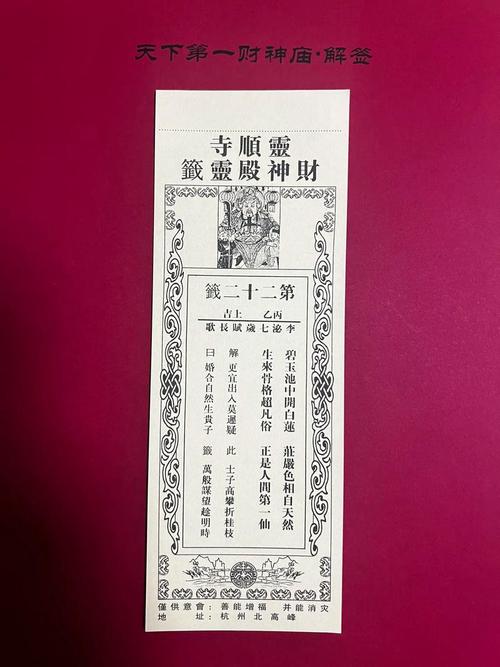 天下第一财神庙·解签
靈順寺
財神殿靈籤
第二十二籤
丙乙 上吉
李泌七歲賦長歌
碧玉池中開白蓮 莊嚴色相自天然
生來骨格超凡俗 正是人間第一仙
解曰 此籤
更宜出入莫遲疑 士子高攀折桂枝
婚合自然生貴子 萬般謀望趁明時
僅供意會：善能增福 并能消灾
地址：杭州北高峰